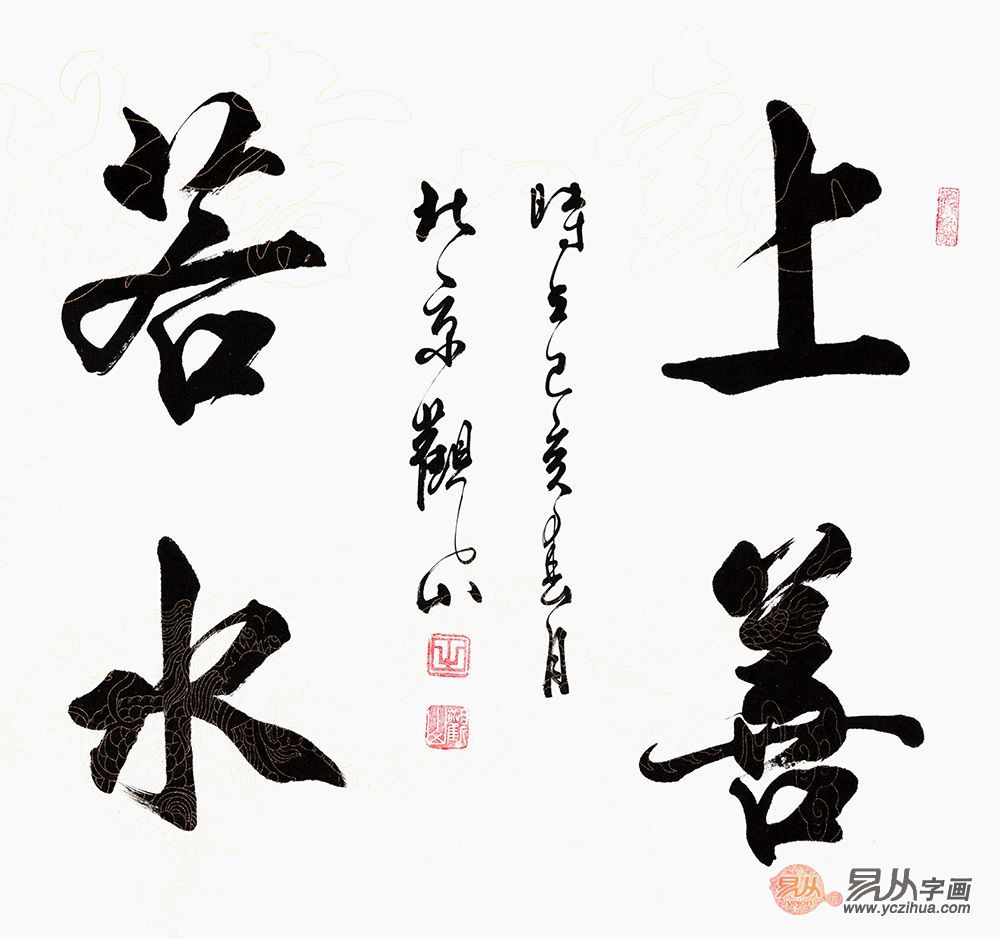 上善
時在己亥春月
北京觀山
若水
易从
yejon
易从字画
www.yczihua.com